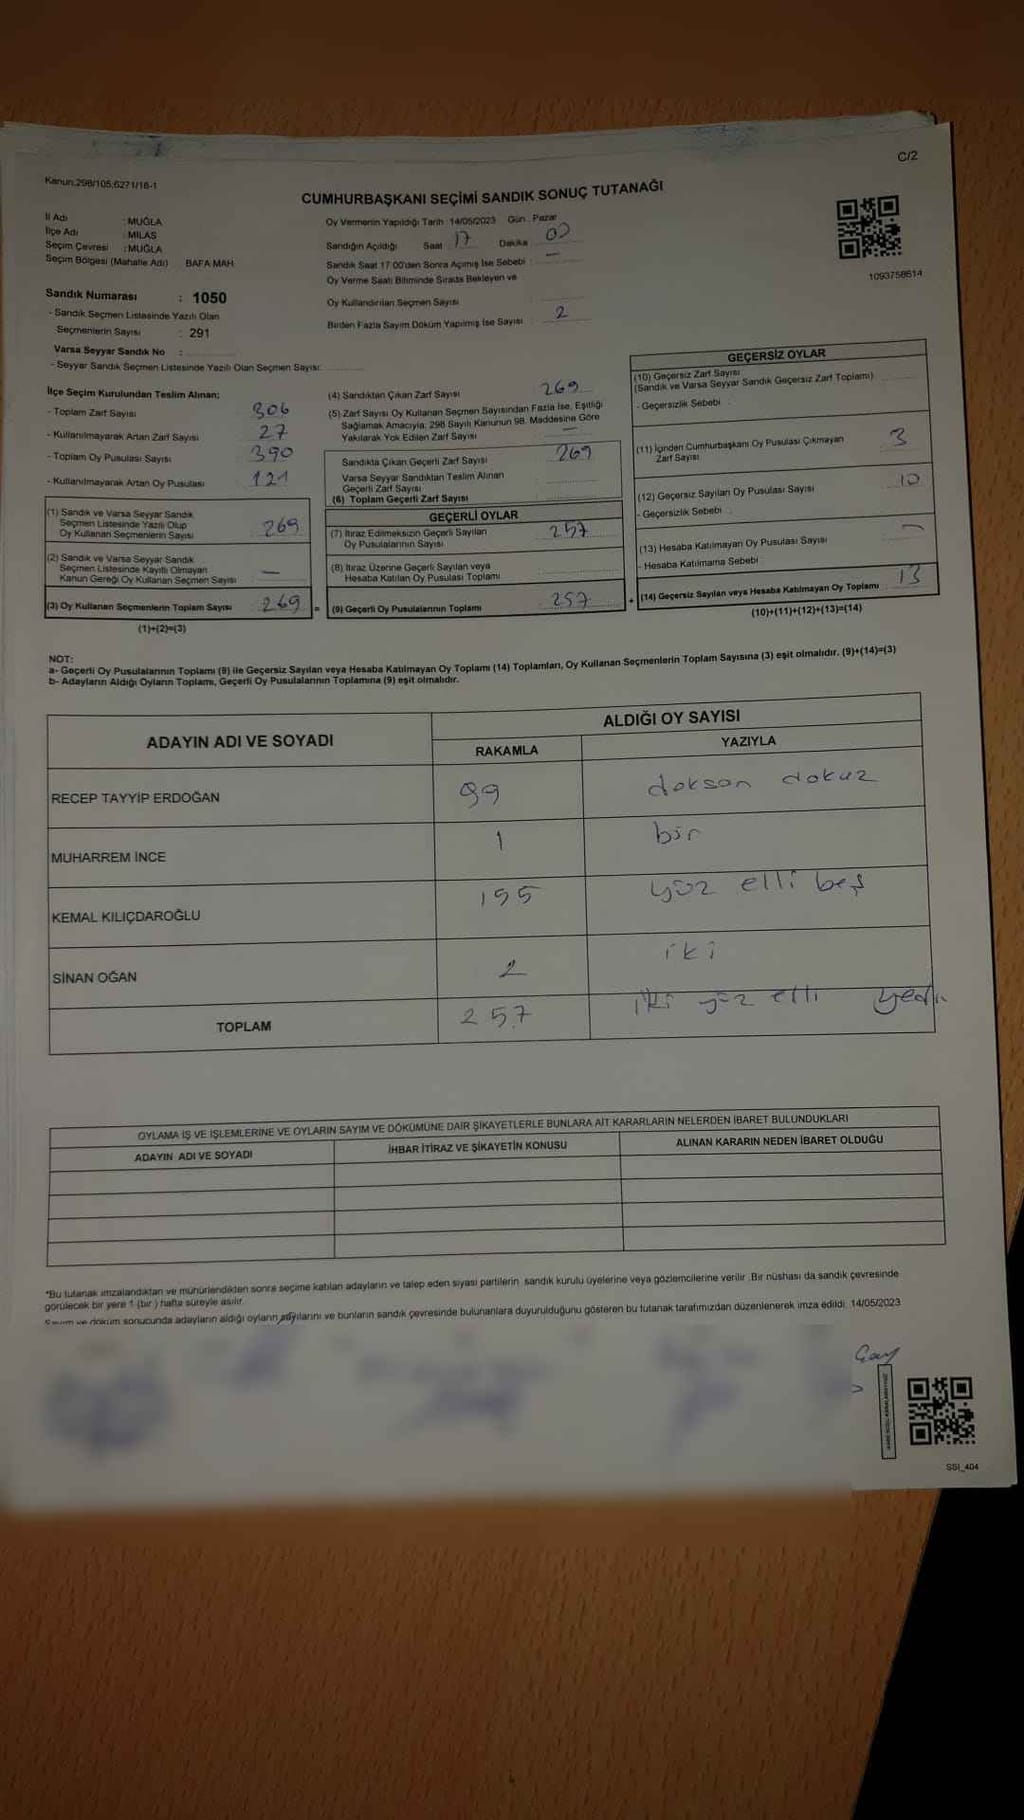 C/2
Kanun:298/105;6271/16-1
CUMHURBAŞKANI SEÇİMİ SANDIK SONUÇ TUTANAĞI
İl Adı : MUĞLA
İlçe Adı : MİLAS
Seçim Çevresi : MUĞLA
Seçim Bölgesi (Mahalle Adı) BAFA MAH.
Sandık Numarası : 1050
- Sandık Seçmen Listesinde Yazılı Olan
Seçmenlerin Sayısı : 291
Varsa Seyyar Sandık No :
- Seyyar Sandık Seçmen Listesinde Yazılı Olan Seçmen Sayısı:
Oy Vermenin Yapıldığı Tarih : 14/05/2023 Gün : Pazar
Sandığın Açıldığı Saat : 17 Dakika :
Sandık Saat 17:00'den Sonra Açılmış İse Sebebi : —
Oy Verme Saati Bitiminde Sırada Bekleyen ve
Oy Kullandırılan Seçmen Sayısı :
Birden Fazla Sayım Döküm Yapılmış İse Sayısı : 2
1093758614
İlçe Seçim Kurulundan Teslim Alınan;
- Toplam Zarf Sayısı 306
- Kullanılmayarak Artan Zarf Sayısı 27
- Toplam Oy Pusulası Sayısı 390
- Kullanılmayarak Artan Oy Pusulası 121
(1) Sandık ve Varsa Seyyar Sandık
Seçmen Listesinde Yazılı Olup
Oy Kullanan Seçmenlerin Sayısı 269
(2) Sandık ve Varsa Seyyar Sandık
Seçmen Listesinde Kayıtlı Olmayan
Kanun Gereği Oy Kullanan Seçmen Sayısı —
(3) Oy Kullanan Seçmenlerin Toplam Sayısı 269 =
(1)+(2)=(3)
(4) Sandıktan Çıkan Zarf Sayısı 269
(5) Zarf Sayısı Oy Kullanan Seçmen Sayısından Fazla İse, Eşitliği
Sağlamak Amacıyla, 298 Sayılı Kanunun 98. Maddesine Göre
Yakılarak Yok Edilen Zarf Sayısı —
Sandıkta Çıkan Geçerli Zarf Sayısı 269
Varsa Seyyar Sandıktan Teslim Alınan
Geçerli Zarf Sayısı
(6) Toplam Geçerli Zarf Sayısı
GEÇERLİ OYLAR
(7) İtiraz Edilmeksizin Geçerli Sayılan
Oy Pusulalarının Sayısı 257
(8) İtiraz Üzerine Geçerli Sayılan veya
Hesaba Katılan Oy Pusulası Toplamı
(9) Geçerli Oy Pusulalarının Toplamı 257 +
GEÇERSİZ OYLAR
(10) Geçersiz Zarf Sayısı
(Sandık ve Varsa Seyyar Sandık Geçersiz Zarf Toplamı)
- Geçersizlik Sebebi :
(11) İçinden Cumhurbaşkanı Oy Pusulası Çıkmayan
Zarf Sayısı 3
(12) Geçersiz Sayılan Oy Pusulası Sayısı 10
- Geçersizlik Sebebi :
(13) Hesaba Katılmayan Oy Pusulası Sayısı —
- Hesaba Katılmama Sebebi :
(14) Geçersiz Sayılan veya Hesaba Katılmayan Oy Toplamı 13
(10)+(11)+(12)+(13)=(14)
NOT:
a- Geçerli Oy Pusulalarının Toplamı (9) ile Geçersiz Sayılan veya Hesaba Katılmayan Oy Toplamı (14) Toplamları, Oy Kullanan Seçmenlerin Toplam Sayısına (3) eşit olmalıdır. (9)+(14)=(3)
b- Adayların Aldığı Oyların Toplamı, Geçerli Oy Pusulalarının Toplamına (9) eşit olmalıdır.
ADAYIN ADI VE SOYADI
ALDIĞI OY SAYISI
RAKAMLA YAZIYLA
RECEP TAYYİP ERDOĞAN 99 doksan dokuz
MUHARREM İNCE 1 bir
KEMAL KILIÇDAROĞLU 155 yüz elli beş
SİNAN OĞAN 2 iki
TOPLAM 257 iki yüz elli yedi
OYLAMA İŞ VE İŞLEMLERİNE VE OYLARIN SAYIM VE DÖKÜMÜNE DAİR ŞİKAYETLERLE BUNLARA AİT KARARLARIN NELERDEN İBARET BULUNDUKLARI
ADAYIN ADI VE SOYADI İHBAR İTİRAZ VE ŞİKAYETİN KONUSU ALINAN KARARIN NEDEN İBARET OLDUĞU
*Bu tutanak imzalandıktan ve mühürlendikten sonra seçime katılan adayların ve talep eden siyasi partilerin sandık kurulu üyelerine veya gözlemcilerine verilir. Bir nüshası da sandık çevresinde
görülecek bir yere 1 (bir) hafta süreyle asılır.
Sayım ve döküm sonucunda adayların aldığı oyların sayılarını ve bunların sandık çevresinde bulunanlara duyurulduğunu gösteren bu tutanak tarafımızdan düzenlenerek imza edildi. 14/05/2023
SSI_404